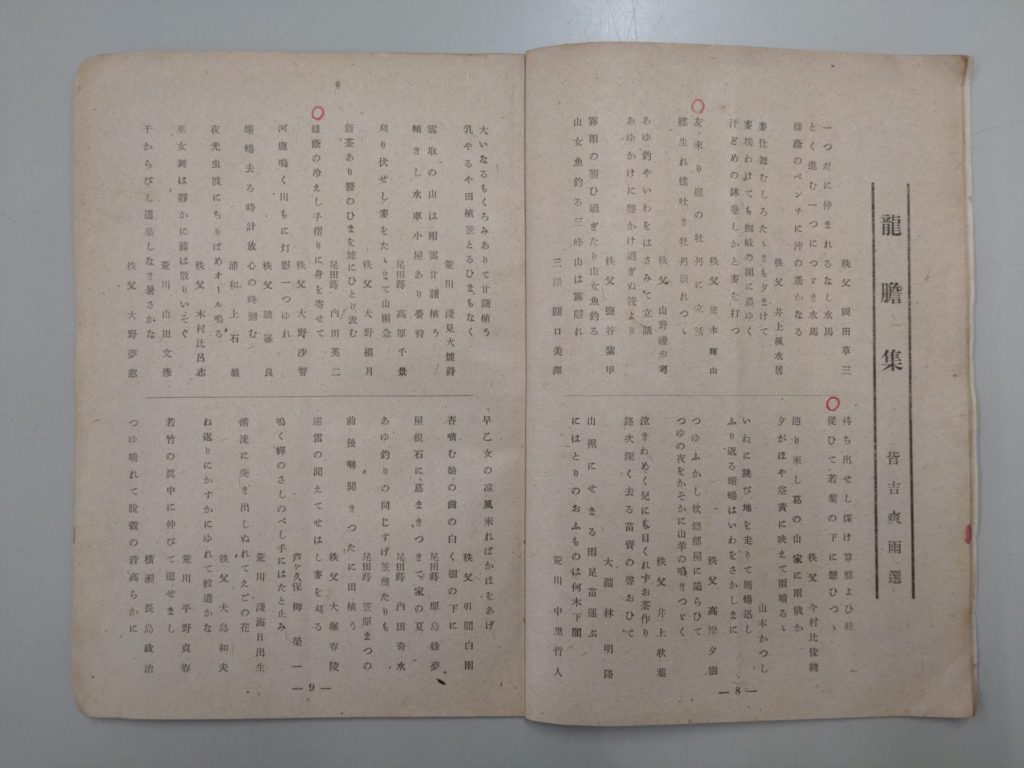 龍膽集
皆吉爽雨選
秩父 岡田草三
一つだに停まれるなし水馬
とく進む一つにつゞき水馬
緑蔭のベンチに沖の遙かなる
秩父 井上
麥仕舞むしろたゝきも夕まけて
麥埃わけても蜘蛛の圍に濃ゆく
汗どめの鉢巻しかと麥を打つ
秩父 黒木輝山
女來り庭の牡丹に立話
蝶生れ蝶吐き牡丹崩れつゝ
秩父 山野邊
あゆ釣やいわをはさみて立話
あゆかけに聲かけ過ぎぬ後より
鹽谷 紫甲
霧雨の閧ひ過ぎたり山女魚釣る
山女魚釣る三峰山は霧隱れ
三澤 關口美
持ち出せし煤け算盤よひ蛙
從ひて若葉の下に憩ひつゝ
秩父 今村比佐緒
辿り來し葛の山家に雨戰か
夕がほや空黄に映えて雨晴る
山本かつし
いわに跳び地を走りて蜥蜴迅し
ふり返る蜥蜴はいわをさかしまに
秩父 高岸夕樹
つゆふかし炊煙部屋に籠らひて
つゆの夜をかそかに山羊の鳴きつゞく
秩父 井上耿葉
泣きわめく兒にも目くれずお茶作り
路次深く去る苗賣の聲おひて
大瀧 林明路
山湖にせまる雨足苗運ぶ
にはとりのおふものは何木下闇
荒川 中里哲人
— 8 —
大いなるもくろみありて甘藷植う
乳やるや田植笠とるひまもなく
荒川 淺見火爐詩
雲取の山は雨雲甘藷植う
傾きし水車小屋あり螢狩
尾田蒔 高原千景
刈り伏せし麥をたゝまて山雨急
秩父 大野槇月
新茶あり醫のひまを爐にひとり汲む
尾田蒔 内田英二
緑蔭の冷えし手摺りに身を寄せて
秩父 大野沙智
河鹿鳴く川もに灯影一つゆれ
秩父 玻羅良
蜥蜴去る時計放心の時刻む
浦和 上石巖
夜光虫波にちりばめオール鳴る
秩父 木村比呂志
巫女舞は靜かに藤は散りいそぐ
荒川 山田文彦
干からびし道果しなき暑さかな
秩父 大野夢窓
早乙女の凉風來ればかほをあげ
秩父 引間白雨
杏噛む娘の齒の白く樹の下に
尾田蒔 原島緑夢
屋根石に蔦まきつきて家の夏
尾田蒔 内田寄水
あゆ釣りの同じすげ笠幾たりも
尾田蒔 笠原まつの
前後晰聞きつたに田植う
秩父 大塚春陵
遠雷の聞えてせはし麥を刈る
芦ケ久保 柳榮一
鳴く蟬のさしのべし手にはたと止み
荒川 淺海日出生
清流に突き出しぬれてえごの花
秩父 大島和夫
ね返りにかすかにゆれて蚊遣かな
荒川 平野貞春
若竹の眞中に伸びて道せまし
横瀬 長島政治
つゆ晴れて脱穀の音高らかに
— 9 —